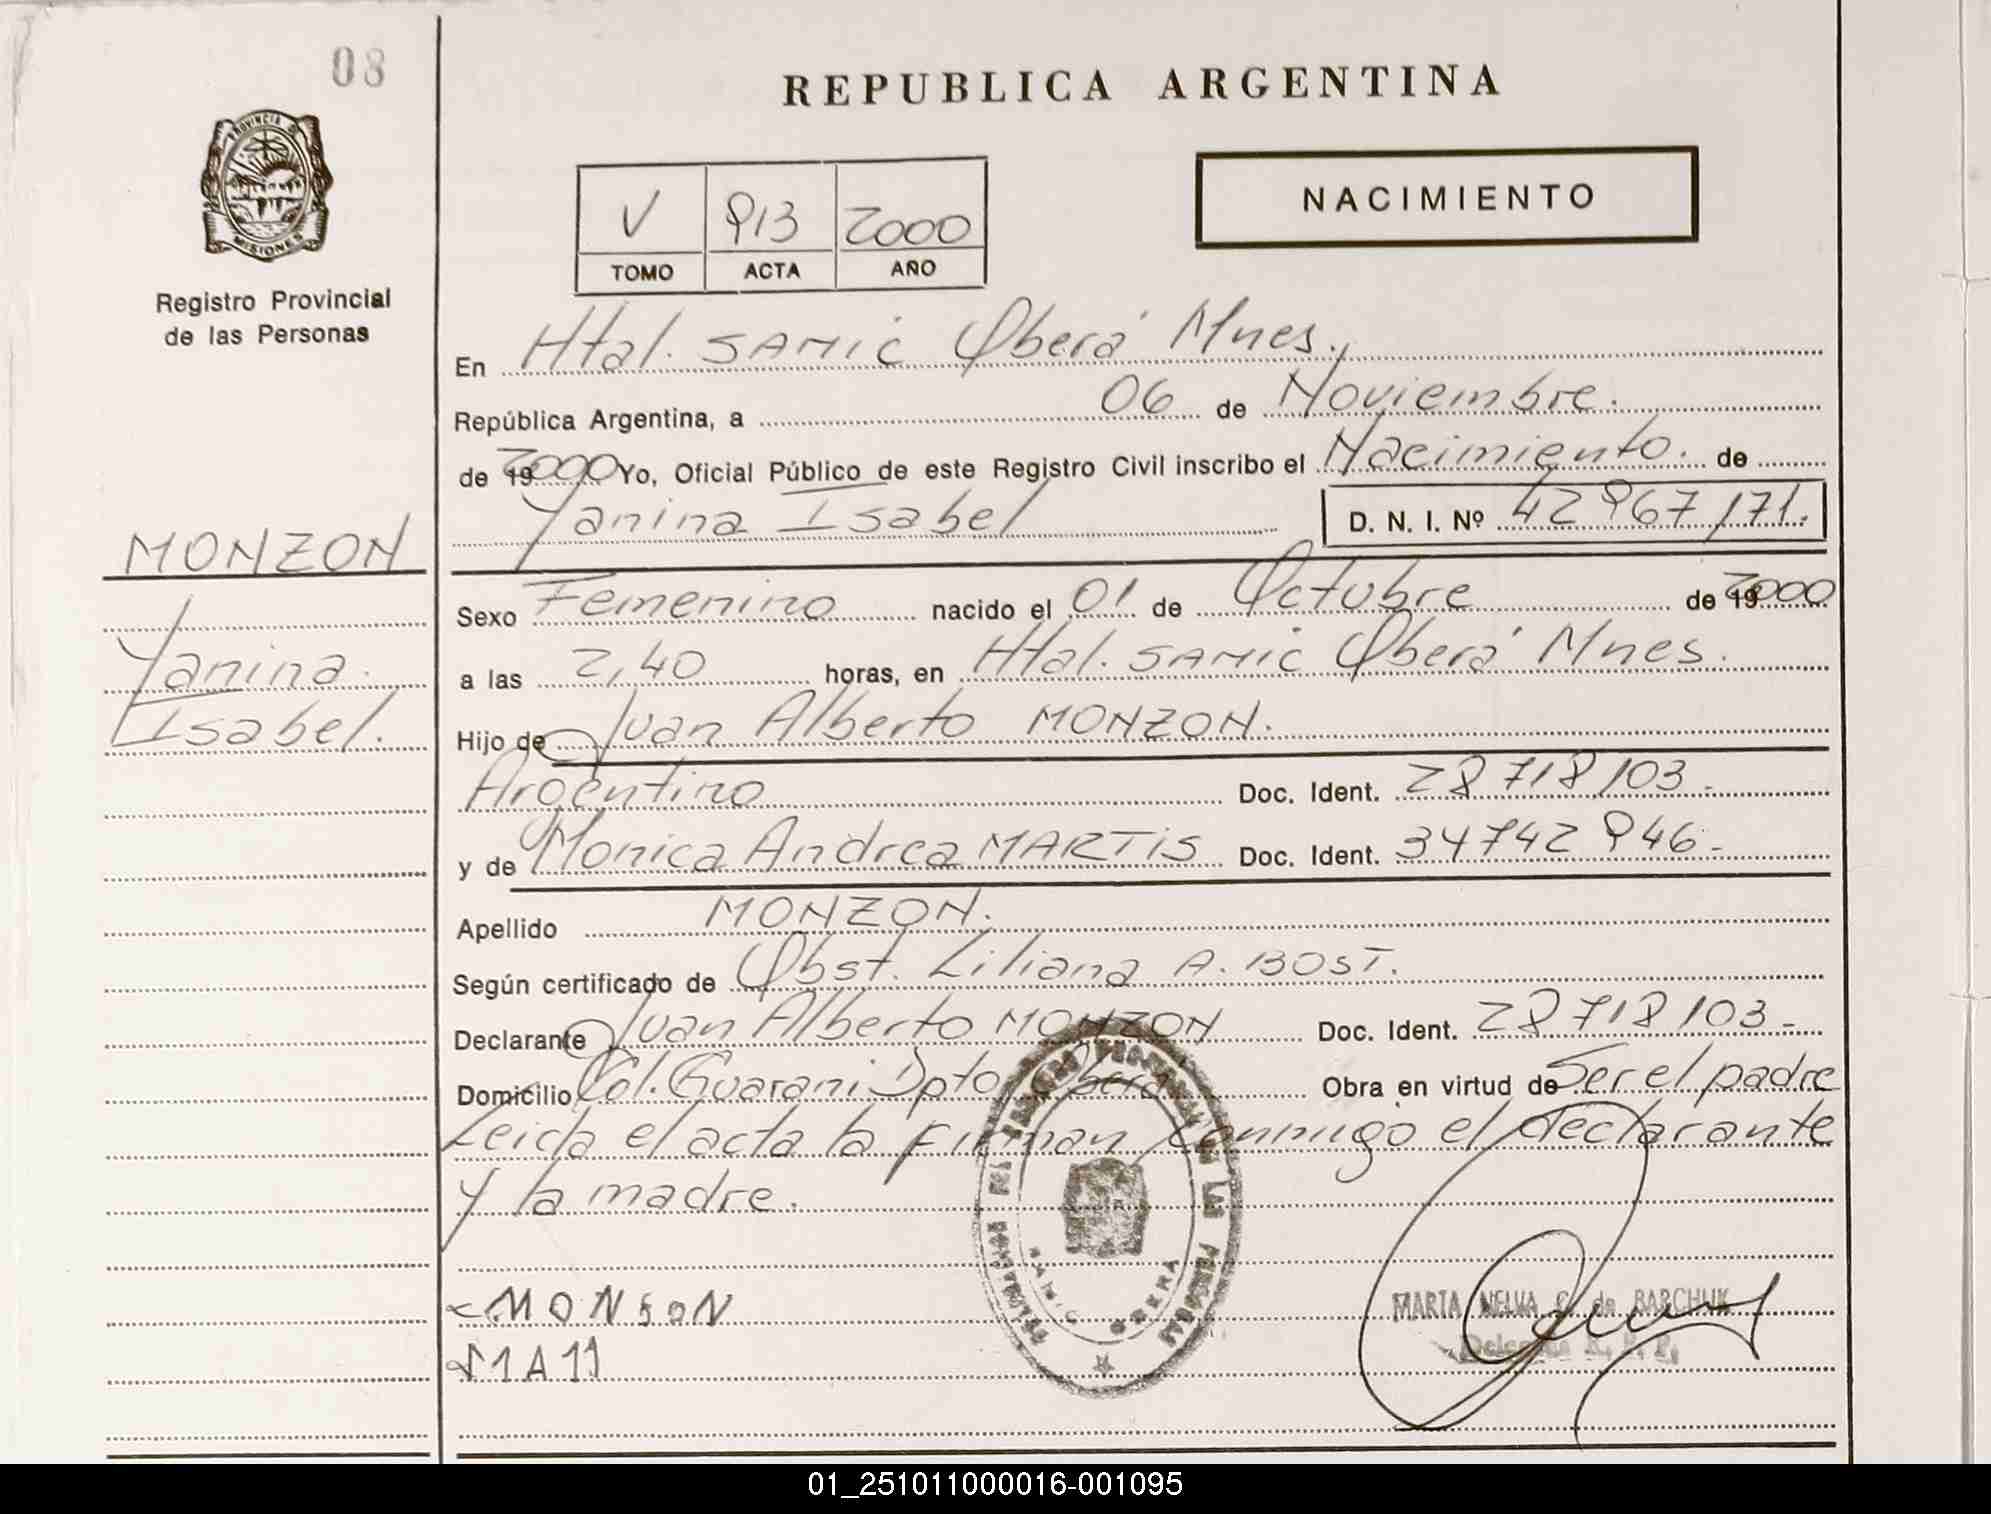 08
PROVINCIA DE
MISIONES
Registro Provincial
de las Personas
MONZON
Yanina
Isabel.
REPUBLICA ARGENTINA
NACIMIENTO
V 913 2000
TOMO ACTA AÑO
En Htal. SAMIC Oberá Mnes.
República Argentina, a 06 de Noviembre.
de 19 2000 Yo, Oficial Público de este Registro Civil inscribo el Nacimiento. de
Yanina Isabel D. N. I. Nº 42967171.
Sexo Femenino nacido el 01 de Octubre de 19 2000
a las 2,40 horas, en Htal. SAMIC Oberá Mnes.
Hijo de Juan Alberto MONZON.
Argentino Doc. Ident. 28718103-
y de Monica Andrea MARTIS Doc. Ident. 34742946-
Apellido MONZON.
Según certificado de Obst. Liliana A. BOST.
Declarante Juan Alberto MONZON Doc. Ident. 28718103-
Domicilio Col. Guarani Dpto Oberá Obra en virtud de Ser el padre
Leida el acta la firman conmigo el declarante
y la madre.
MONSON
MARTA NELVA G. de BARCHUK
Delegada R. P. P.
SAMIC OBERA
01_251011000016-001095